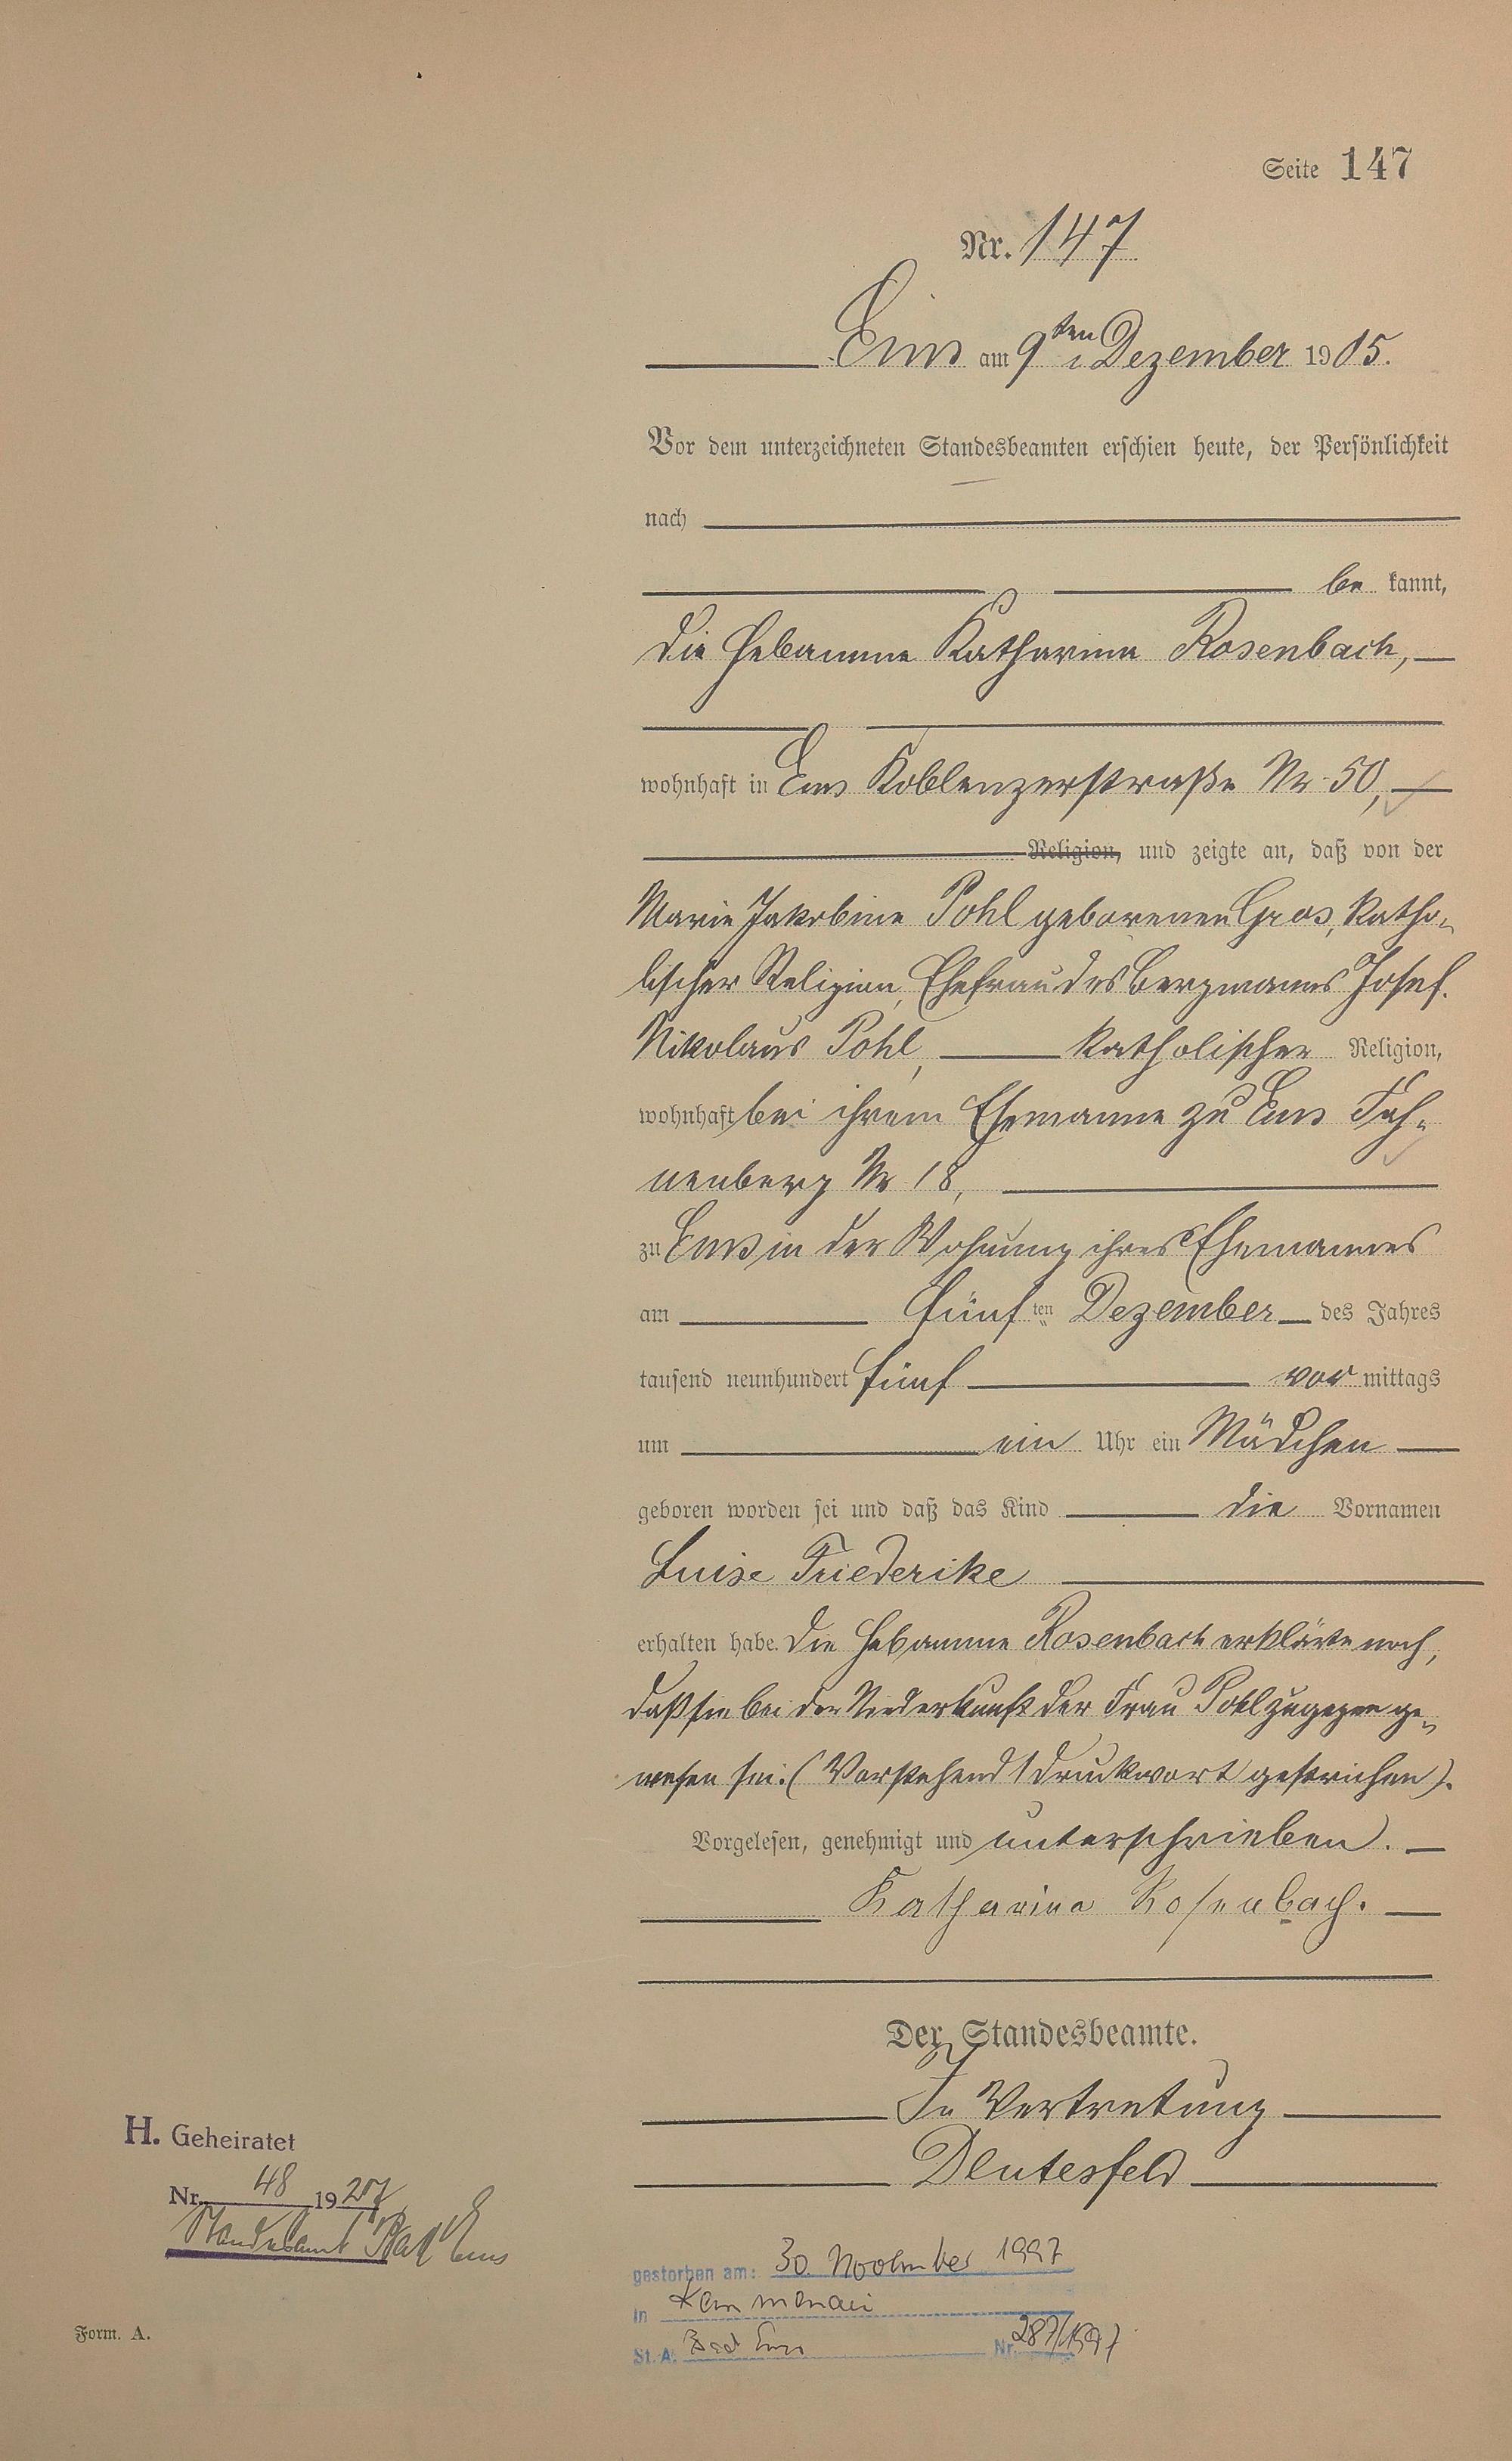 Seite 147
Nr. 147
Ems am 9ten Dezember 1905.
Vor dem unterzeichneten Standesbeamten erschien heute, der Persönlichkeit
nach
be kannt,
die Hebamme Katharina Rosenbach,
wohnhaft in Ems Koblenzerstraße Nr. 50,
Religion, und zeigte an, daß von der
Marie Jakobine Pohl geborenen Gras, katho-
lischer Religion, Ehefrau des Bergmanns Josef
Nikolaus Pohl, katholischer Religion,
wohnhaft bei ihrem Ehemanne zu Ems Fah-
nenberg Nr. 18,
zu Ems in der Wohnung ihres Ehemannes
am fünf ten Dezember des Jahres
tausend neunhundert fünf vor mittags
um ein Uhr ein Mädchen
geboren worden sei und daß das Kind die Vornamen
Luise Friederike
erhalten habe. Die Hebamme Rosenbach erklärte noch,
daß sie bei der Niederkunft der Frau Pohl zugegen ge-
wesen sei. (Vorstehend 1 Druckwort gestrichen).
Vorgelesen, genehmigt und unterschrieben.
Katharina Rosenbach.
Der Standesbeamte.
In Vertretung
H. Geheiratet
Nr. 48 1927
Standesamt Bad Ems
gestorben am: 30. November 1997
in
St. A. Bad Ems Nr. 287/1997
Form. A.